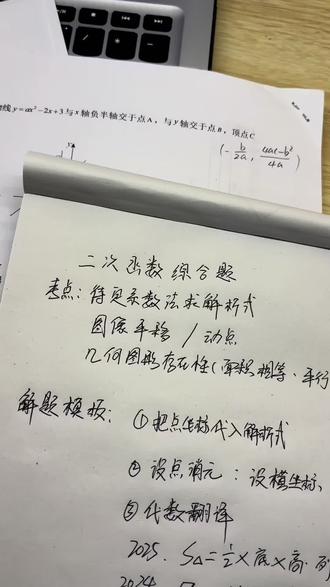 线y=ax²-2x+3与x轴负半轴交于点A，与y轴交于点B，顶点C
(-b/2a, 4ac-b²/4a)
二次函数综合题
考点：待定系数法求解析式
图像平移/动点
几何图形存在性(面积相等、平行
解题模板：①把点坐标代入解析式
②设点消元：设横坐标、
③代数翻译
2025. S△=½×底×高.
2024